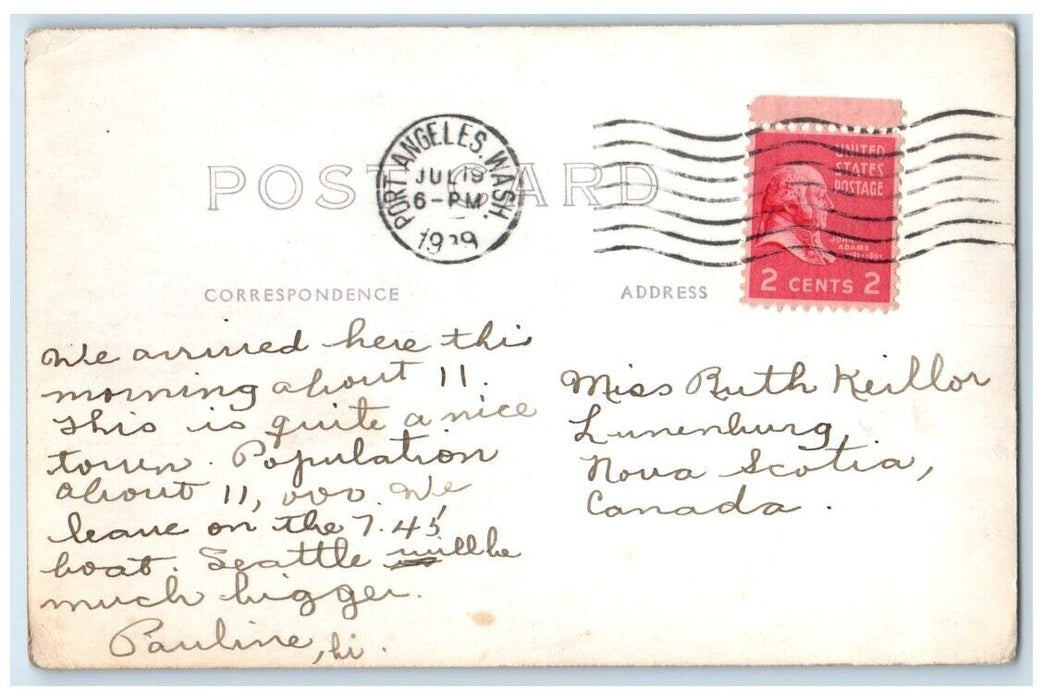 POST CARD
PORT ANGELES, WASH.
JUL 19
6-PM
1939
UNITED
STATES
POSTAGE
JOHN
ADAMS
2 CENTS 2
CORRESPONDENCE
ADDRESS
We arrived here this
morning about 11.
This is quite a nice
town. Population
about 11,000. We
leave on the 7.45
boat. Seattle will be
much bigger.
Pauline, hi.
Miss Ruth Keillor
Lunenburg,
Nova Scotia,
Canada.